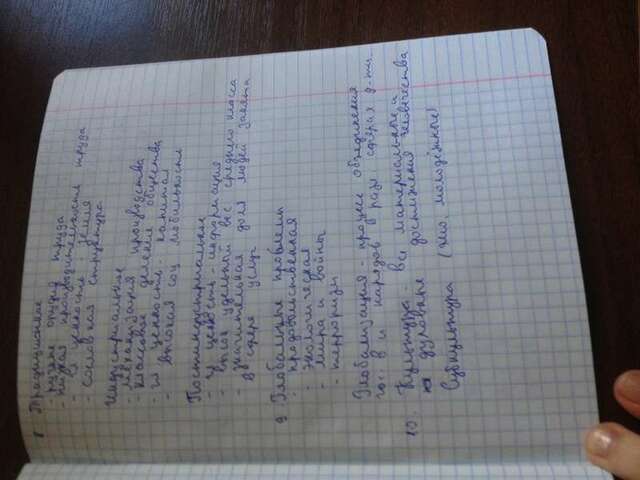 8 Традиционное
- ручные орудия труда
- низкая производительность труда
- гл ценность - земля
- сословная структура
Индустриальное
- механизация производства
- классовое деление общества
- гл ценность - капитал
- высокая соц мобильность
Постиндустриальное
- гл ценность - информация
- высок удельный вес среднего класса
- значительная доля людей занята
в сфере услуг
9 Глобальные проблемы
- продовольственная
- экологическая
- мира и войны
- терроризм
Глобализация - процесс объединения
гос. в и народов в разл сферах д-ти.
10. Культура - все материальные и
духовные достижения человечества
Субкультура (молодёжные)